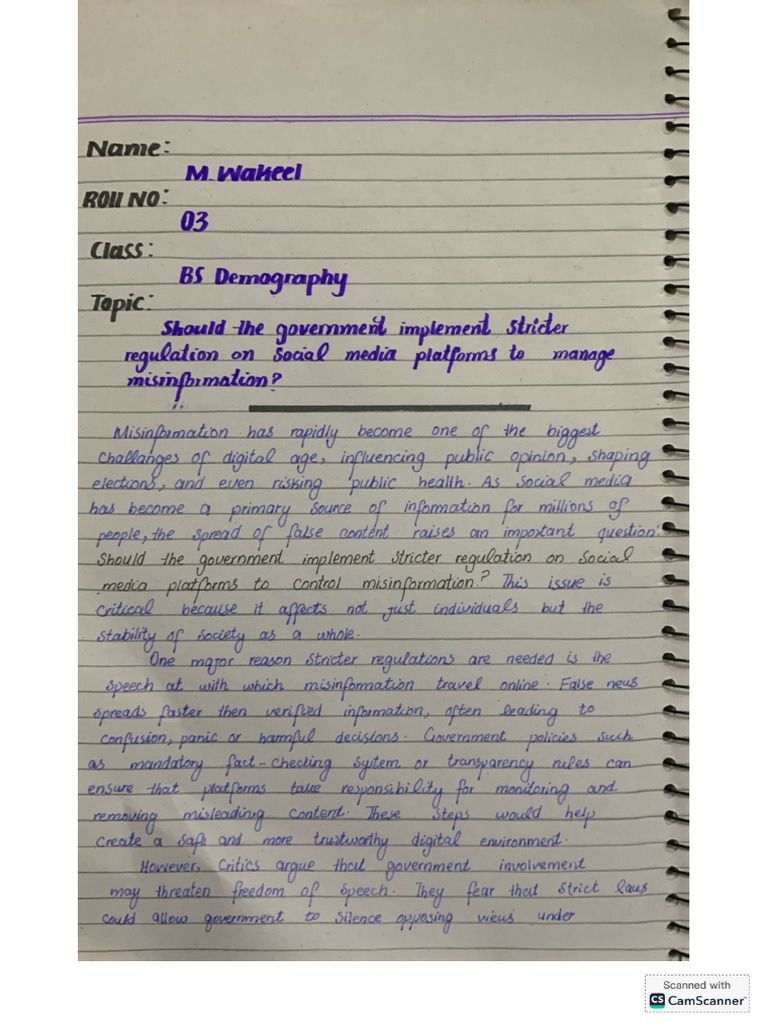 Name:
M Wakeel
Roll NO:
03
Class:
BS Demography
Topic:
Should the government implement stricter
regulation on Social media platforms to manage
misinformation?
Misinformation has rapidly become one of the biggest
challanges of digital age, influencing public opinion, shaping
elections, and even risking public health. As social media
has become a primary source of information for millions of
people, the spread of false content raises an important question:
Should the government implement stricter regulation on Social
media platforms to control misinformation? This issue is
critical because it affects not just individuals but the
stability of society as a whole.
One major reason stricter regulations are needed is the
speech at with which misinformation travel online. False news
spreads faster then verified information, often leading to
confusion, panic or harmful decisions. Government policies such
as mandatory fact-checking system or transparency rules can
ensure that platforms take responsibility for monitoring and
removing misleading content. These steps would help
create a safe and more trustworthy digital environment.
However, critics argue that government involvement
may threaten freedom of speech. They fear that strict laws
could allow government to silence opposing views under
Scanned with
CS CamScanner